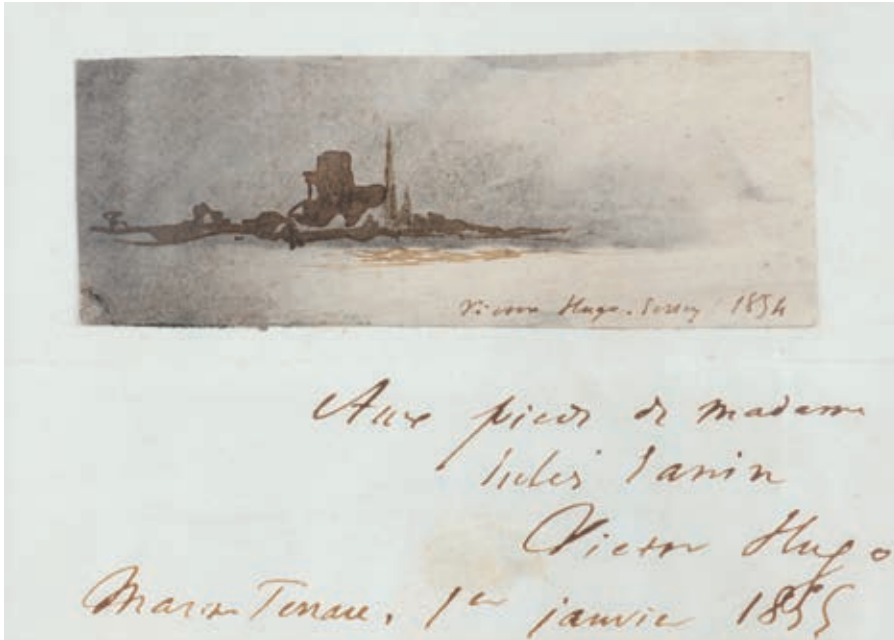 Victor Hugo. Jersey 1854
Aux pieds de madame
Jules Janin
Victor Hugo
Marine Terrace. 1er janvier 1855